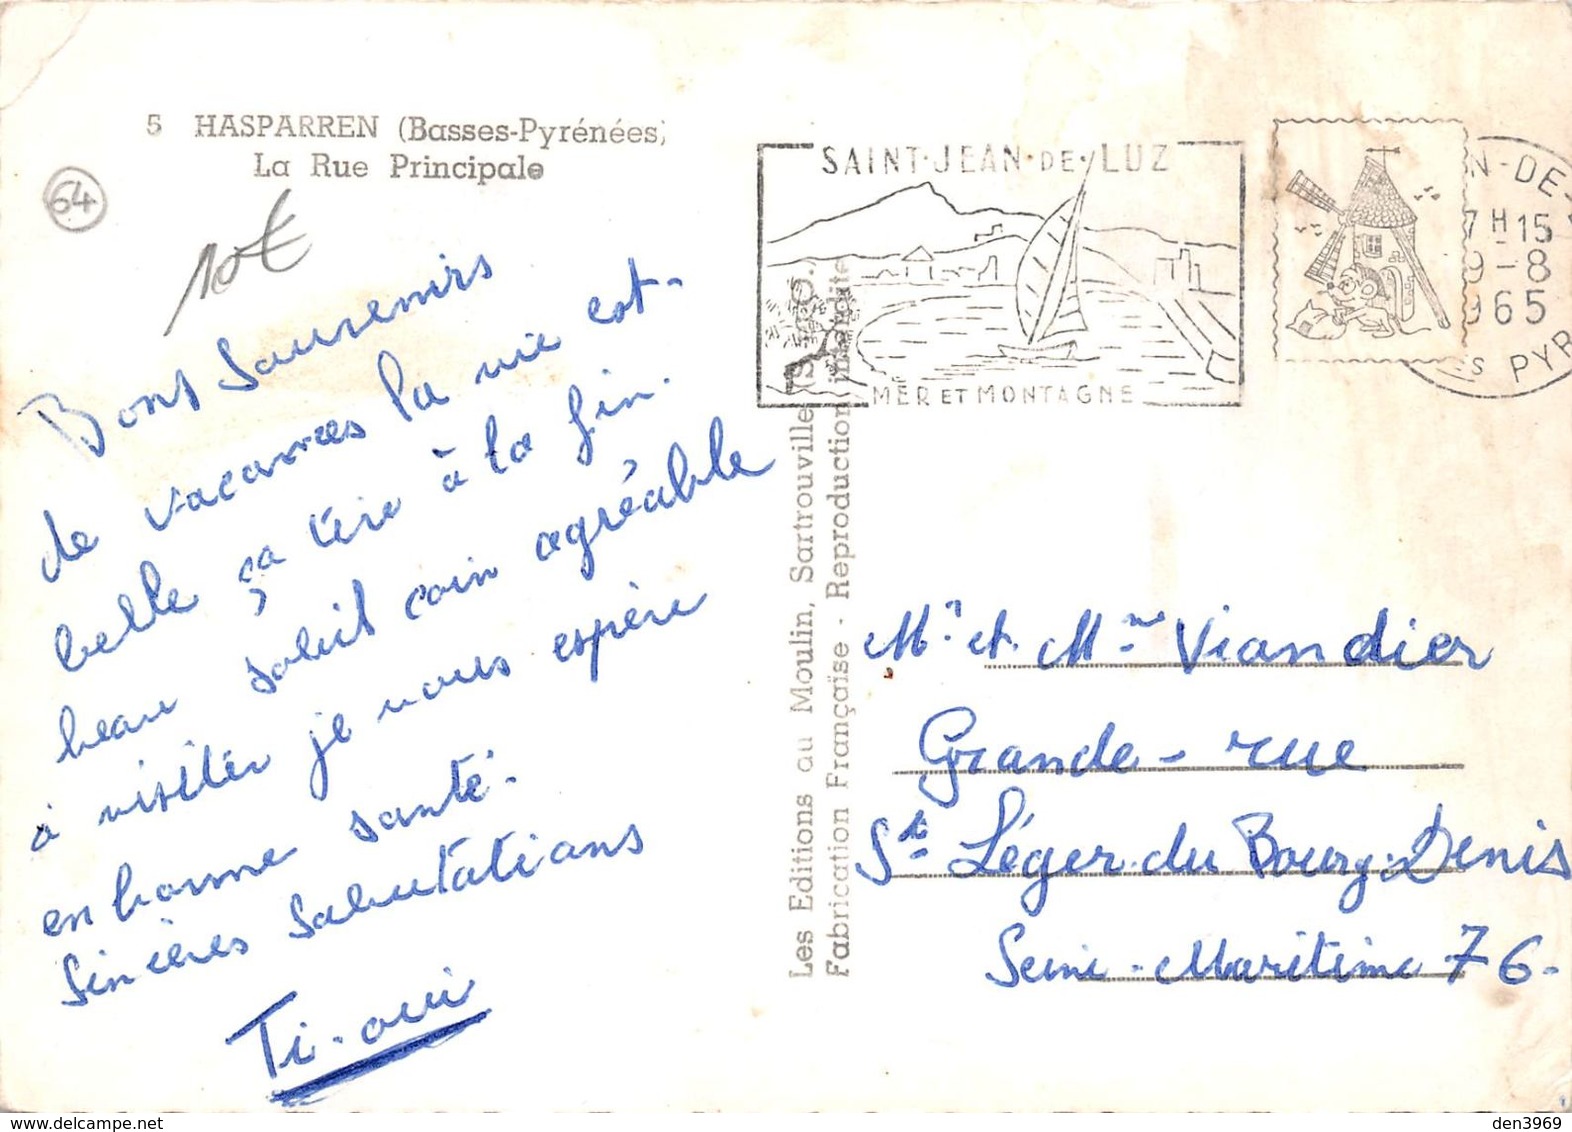 5 HASPARREN (Basses-Pyrénées)
La Rue Principale
64
10€
Bons Souvenirs
de vacances la vie est
belle ça tire à la fin.
beau soleil coin agréable
à visiter je vous espère
en bonne santé.
Sincères Salutations
Ti-oui
Les Editions du Moulin, Sartrouville (S.-&-O.)
Fabrication Française - Reproduction interdite
SAINT·JEAN·DE·LUZ
MER ET MONTAGNE
N-DE-
7H-15
9-8
965
S PYR
Mr et Mme Viandier
Grande-rue
St Léger.du Bourg.Denis
Seine-Maritime 76-
den3969